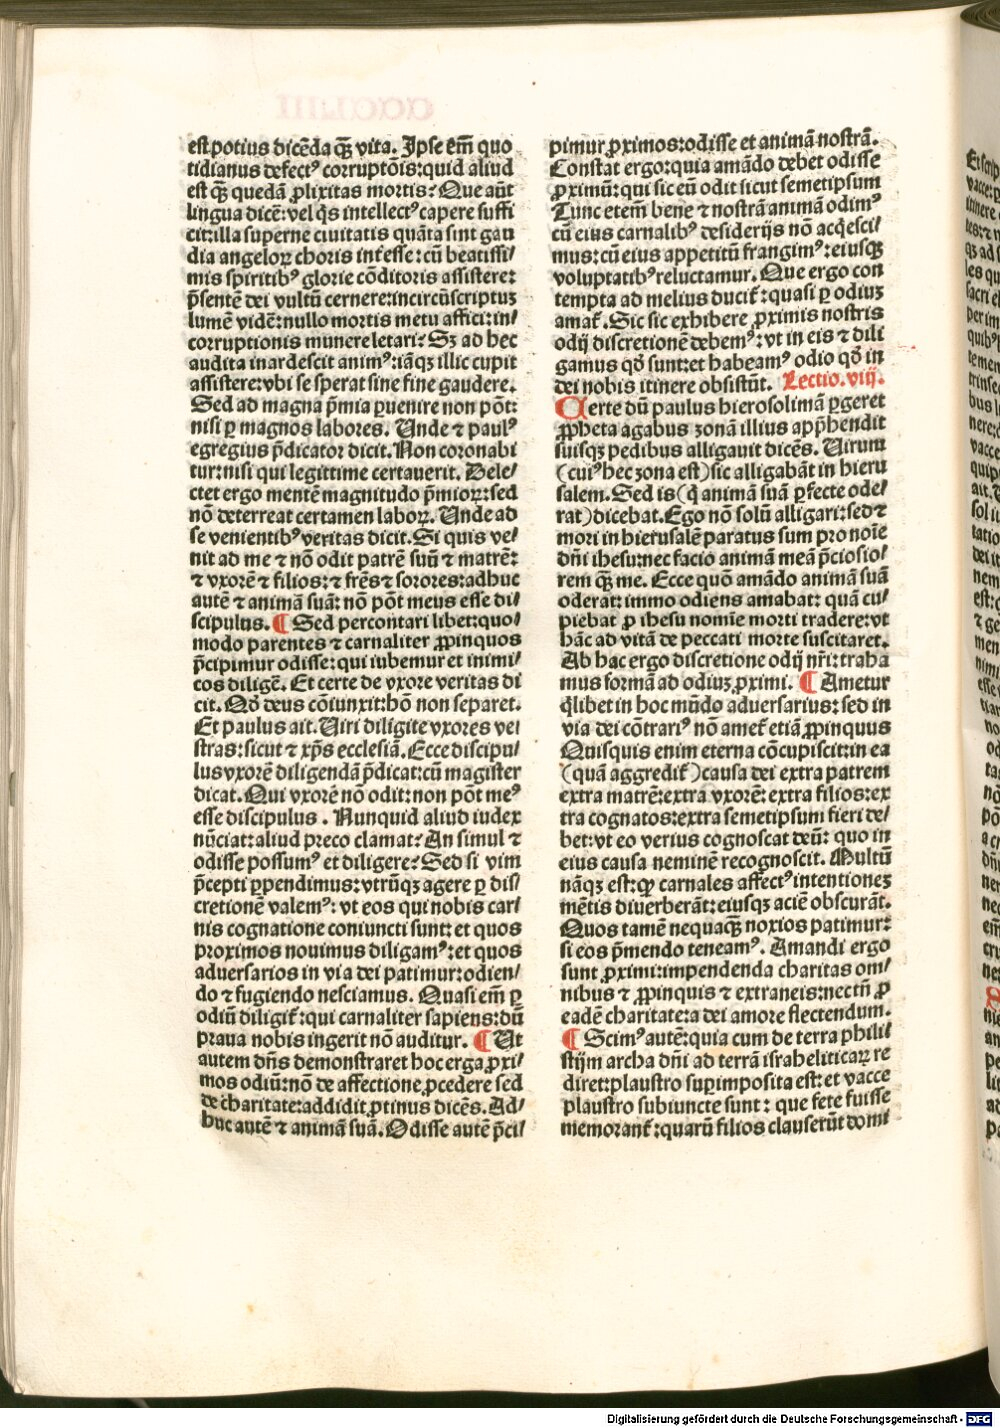 est potius dicēda q̄ꝫ vita. Ipse em̄ quo
tidianus defectꝰ corruptōis: quid aliud
est q̄ꝫ quedā ꝓlixitas mortis? Que aūt
lingua dicē: vel q̇s intellectꝰ capere suffi
cit: illa superne ciuitatis quāta sint gau
dia angeloꝝ choris int̄esse: cū beatissi/
mis spiritibꝰ glorie cōditoris assistere:
p̄sentē dei vultū cernere: incircūscriptuꝫ
lumē vidē: nullo mortis metu affici: in/
corruptionis munere letari? Sꝫ ad hec
audita inardescit animꝰ: iāqꝫ illic cupit
assistere: vbi se sperat sine fine gaudere.
Sed ad magna p̄mia ꝑuenire non pōt:
nisi ꝑ magnos labores. Unde ⁊ paulꝰ
egregius p̄dicator dicit. Non coronabi
tur: nisi qui legittime certauerit. Dele/
ctet ergo mentē magnitudo p̄mioꝝ: sed
nō deterreat certamen laboꝝ. Unde ad
se venientibꝰ veritas dicit. Si quis ve/
nit ad me ⁊ nō odit patrē suū ⁊ matrē:
⁊ vxorē ⁊ filios: ⁊ frēs ⁊ sorores: adhuc
autē ⁊ animā suā: nō pōt meus esse di/
scipulus. ¶ Sed percontari libet: quo/
modo parentes ⁊ carnaliter ꝓpinquos
p̄cipimur odisse: qui iubemur et inimi/
cos diligē. Et certe de vxore veritas di
cit. Qō deus cōiunxit: hō non separet.
Et paulus ait. Uiri diligite vxores ve/
stras: sicut ⁊ xp̄s ecclesiā. Ecce discipu/
lus vxorē diligendā p̄dicat: cū magister
dicat. Qui vxorē nō odit: non pōt meꝰ
esse discipulus. Nunquid aliud iudex
nūciat: aliud preco clamat? An simul ⁊
odisse possumꝰ et diligere? Sed si vim
p̄cepti ꝑpendimus: vtrūqꝫ agere ꝑ dis/
cretionē valemꝰ: vt eos qui nobis car/
nis cognatione coniuncti sunt: et quos
proximos nouimus diligamꝰ: et quos
aduersarios in via dei patimur: odien/
do ⁊ fugiendo nesciamus. Quasi em̄ ꝑ
odiū diligit̄: qui carnaliter sapiens: dū
praua nobis ingerit nō auditur. ¶ Ut
autem dn̄s demonstraret hoc erga ꝓxi/
mos odiū: nō de affectione ꝓcedere sed
de charitate: addidit ꝓtinus dicēs. Ad/
huc autē ⁊ animā suā. Odisse autē p̄ci/
pimur ꝓximos: odisse et animā nostrā.
Constat ergo: quia amādo debet odisse
ꝓximū: qui sic eū odit sicut semetipsum
Tunc etem̄ bene ⁊ nostrā animā odimꝰ
cū eius carnalibꝰ desiderijs nō acq̇esci/
mus: cū eius appetitū frangimꝰ: eiusqꝫ
voluptatibꝰ reluctamur. Que ergo con
tempta ad melius ducit̄: quasi ꝑ odiuꝫ
amat̄. Sic sic exhibere ꝓximis nostris
odij discretionē debemꝰ: vt in eis ⁊ dili
gamus qō sunt: et habeamꝰ odio qō in
dei nobis itinere obsistūt. Lectio. viij.
Certe dū paulus hierosolimā ꝑgeret
ꝓpheta agabus zonā illius app̄hendit
suisqꝫ pedibus alligauit dicēs. Uirum
(cuiꝰ hec zona est) sic alligabāt in hieru
salem. Sed is (q̇ animā suā ꝑfecte ode/
rat) dicebat. Ego nō solū alligari: sed ⁊
mori in hierusalē paratus sum pro noīe
dn̄i ihesu: nec facio animā meā p̄ciosio/
rem q̄ꝫ me. Ecce quō amādo animā suā
oderat: immo odiens amabat: quā cu/
piebat ꝓ ihesu nomīe morti tradere: vt
hāc ad vitā de peccati morte suscitaret.
Ab hac ergo discretione odij nr̄i: traha
mus formā ad odiuꝫ ꝓximi. ¶ Ametur
q̇libet in hoc mūdo aduersarius: sed in
via dei cōtrariꝰ nō amet̄ etiā ꝓpinquus
Quisquis enim eterna cōcupiscit: in ea
(quā aggredit̄) causa dei extra patrem
extra matrē: extra vxorē: extra filios: ex
tra cognatos: extra semetipsum fieri de/
bet: vt eo verius cognoscat deū: quo in
eius causa neminē recognoscit. Multū
nāqꝫ est: ꝙ carnales affectꝰ intentionez
mētis diuerberāt: eiusqꝫ aciē obscurāt.
Quos tamē nequaq̄ꝫ noxios patimur:
si eos p̄mendo teneamꝰ. Amandi ergo
sunt ꝓximi: impendenda charitas om/
nibus ⁊ ꝓpinquis ⁊ extraneis: nec tn̄ ꝓ
eadē charitate: a dei amore flectendum.
¶ Scimꝰ autē: quia cum de terra phili/
stijm archa dn̄i ad terrā israheliticaꝝ re
diret: plaustro suꝑimposita est: et vacce
plaustro subiuncte sunt: que fete fuisse
memorant̄: quarū filios clauserūt domi
Digitalisierung gefördert durch die Deutsche Forschungsgemeinschaft - DFG